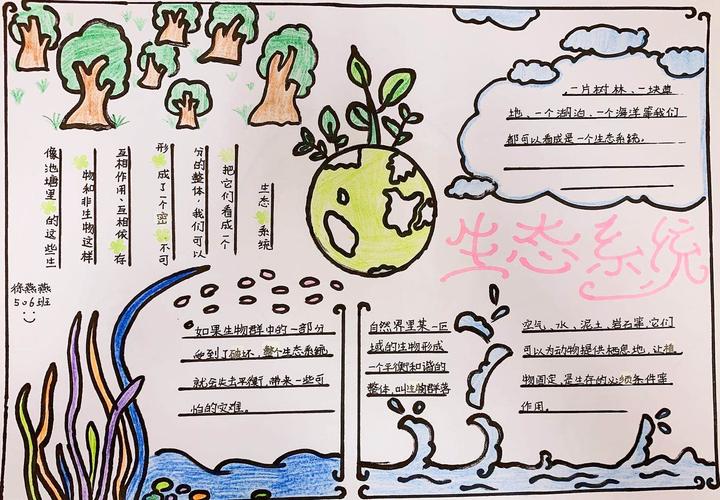 像池塘里的这些生
物和非生物这样
互相作用、互相依存
形成了一个密不可
分的整体，我们可以
把它们看成一个
生态系统
一片树林、一块草
地、一个湖泊、一个海洋等我们
都可以看成是一个生态系统。
生态系统
徐燕燕
506班
如果生物群中的一部分
受到了破坏，整个生态系统
就会失去平衡，带来一些可
怕的灾难。
自然界里某一区
域的生物形成
一个平衡和谐的
整体，叫生物群落
空气、水、泥土、岩石等，它们
可以为动物提供栖息地，让植
物固定，是生存的必须条件率
作用。